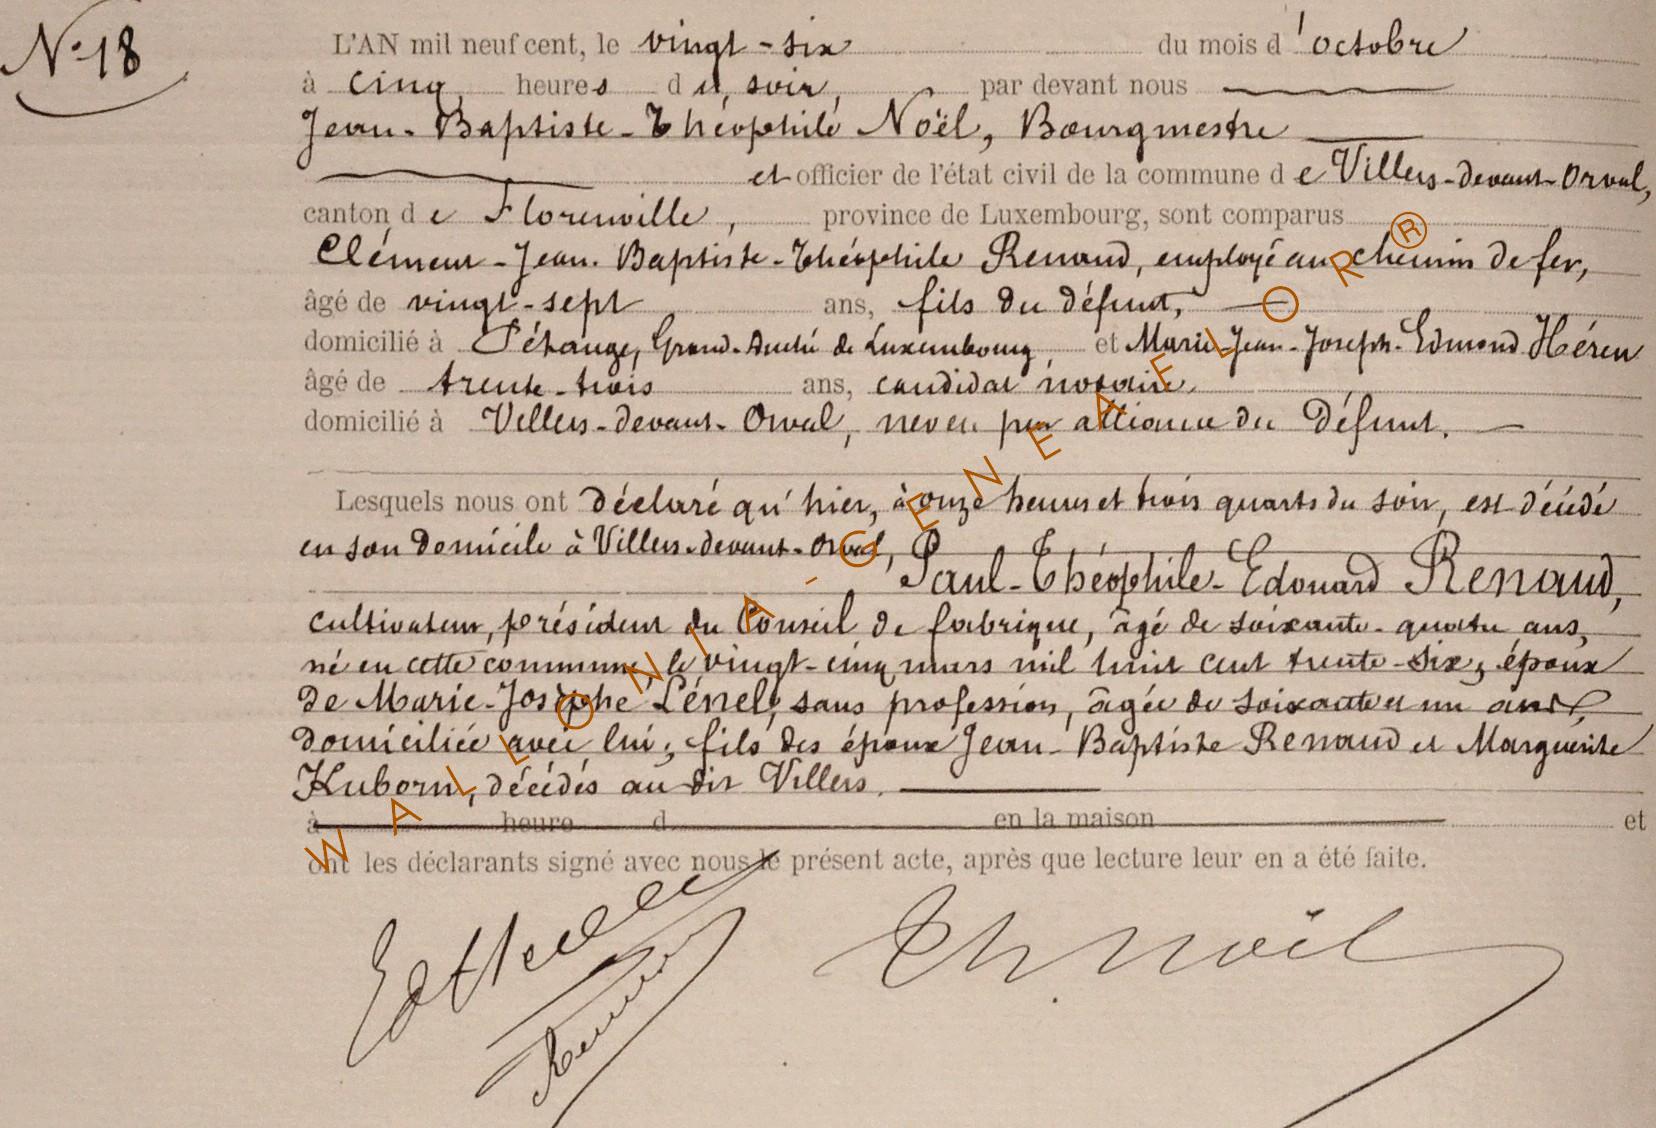 N° 18
L'AN mil neuf cent, le vingt-six du mois d'octobre
à cinq heures du soir, par devant nous
Jean-Baptiste-Théophile Noël, Bourgmestre
et officier de l'état civil de la commune de Villers-devant-Orval,
canton de Florenville, province de Luxembourg, sont comparus
Clément-Jean-Baptiste-Théophile Renaud, employé au chemin de fer,
âgé de vingt-sept ans, fils du défunt,
domicilié à Pétange, Grand-Duché de Luxembourg, et Marie-Jean-Joseph-Edmond
âgé de trente-trois ans, candidat notaire,
domicilié à Villers-devant-Orval, neveu par alliance du Défunt.
Lesquels nous ont déclaré qu'hier, à onze heures et trois quarts du soir, est décédé
en son domicile à Villers-devant-Orval, Paul-Théophile-Edouard Renaud,
cultivateur, président du Conseil de fabrique, âgé de soixante-quatre ans,
né en cette commune, le vingt-cinq mars mil huit cent trente-six, époux
de Marie-Josèphe Lénel, sans profession, âgée de soixante et un ans,
domiciliée avec lui; fils des époux Jean-Baptiste Renaud et Marguerite
Kuborn, décédés au dit Villers.
à heure d en la maison et
ont les déclarants signé avec nous le présent acte, après que lecture leur en a été faite.
Th Noël
WALLONIA-GENEAFLOR®